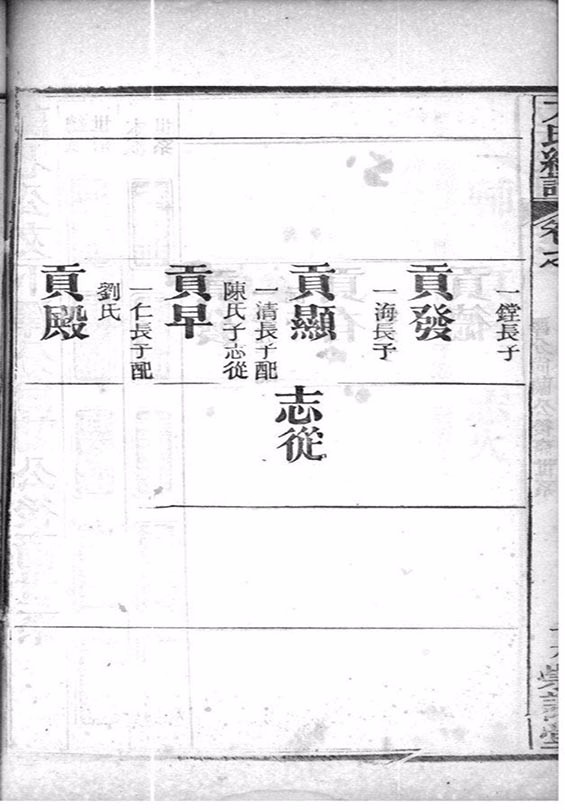 一鏜長子
貢發
一海長子
貢顯
一清長子配
陳氏子志從
志從
貢早
一仁長子配
劉氏
貢殿